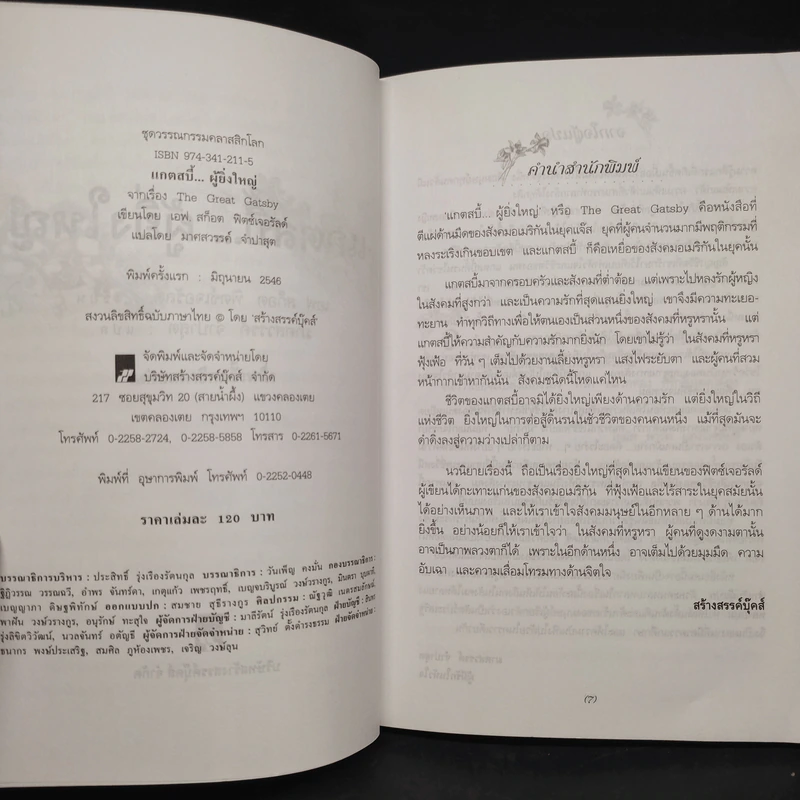 ชุดวรรณกรรมคลาสสิกโลก
ISBN 974-341-211-5
แกตสบี้... ผู้ยิ่งใหญ่
จากเรื่อง The Great Gatsby
เขียนโดย เอฟ. สก็อต ฟิตซ์เจอรัลด์
แปลโดย มาศสวรรค์ จำปาสุต
พิมพ์ครั้งแรก : มิถุนายน 2546
สงวนลิขสิทธิ์ฉบับภาษาไทย © โดย 'สร้างสรรค์บุ๊คส์'
จัดพิมพ์และจัดจำหน่ายโดย
บริษัทสร้างสรรค์บุ๊คส์ จำกัด
217 ซอยสุขุมวิท 20 (สายน้ำผึ้ง) แขวงคลองเตย
เขตคลองเตย กรุงเทพฯ 10110
โทรศัพท์ 0-2258-2724, 0-2258-5858 โทรสาร 0-2261-5671
พิมพ์ที่ อุษาการพิมพ์ โทรศัพท์ 0-2252-0448
ราคาเล่มละ 120 บาท
บรรณาธิการบริหาร : ประสิทธิ์ รุ่งเรืองรัตนกุล บรรณาธิการ : วันเพ็ญ คงมั่น กองบรรณาธิการ :
ฐิฏิวรรณ วรรณถวี, อำพร จันทร์ดา, เกตุแก้ว เพชรฤทธิ์, เบญจบริบูรณ์ วงษ์วรางกูร, มินตรา
เบญญาภา ดิษฐพิทักษ์ ออกแบบปก : สมชาย สุธีรางกูร ศิลปกรรม : ณัฐวุฒิ
พาฝัน วงษ์วรางกูร, อนุรักษ์ ทะสุใจ ผู้จัดการฝ่ายบัญชี : มาลีรัตน์ รุ่งเรืองรัตนกุล ฝ่ายบัญชี :
รุ่งลิขิตวิวัฒน์, นวลจันทร์ อตัญถี ผู้จัดการฝ่ายจัดจำหน่าย : สุวิทย์ ตั้งดำรงธรรม ฝ่ายจัดจำหน่าย :
ธนากร พงษ์ประเสริฐ, สมศิล ภูท้องเพชร, เจริญ วงษ์ลุน
คำนำสำนักพิมพ์
'แกตสบี้... ผู้ยิ่งใหญ่' หรือ The Great Gatsby คือหนังสือที่
ตีแผ่ด้านมืดของสังคมอเมริกันในยุคแจ๊ส ยุคที่ผู้คนจำนวนมากมีพฤติกรรมที่
หลงระเริงเกินขอบเขต และแกตสบี้ ก็คือเหยื่อของสังคมอเมริกันในยุคนั้น
แกตสบี้มาจากครอบครัวและสังคมที่ต่ำต้อย แต่เพราะไปหลงรักผู้หญิง
ในสังคมที่สูงกว่า และเป็นความรักที่สุดแสนยิ่งใหญ่ เขาจึงมีความทะเยอ-
ทะยาน ทำทุกวิถีทางเพื่อให้ตนเองเป็นส่วนหนึ่งของสังคมที่หรูหรานั้น แต่
แกตสบี้ให้ความสำคัญกับความรักมากยิ่งนัก โดยเขาไม่รู้ว่า ในสังคมที่หรูหรา
ฟุ้งเฟ้อ ที่วัน ๆ เต็มไปด้วยงานเลี้ยงหรูหรา แสงไฟระยับตา และผู้คนที่สวม
หน้ากากเข้าหากันนั้น สังคมชนิดนี้โหดแค่ไหน
ชีวิตของแกตสบี้อาจมิได้ยิ่งใหญ่เพียงด้านความรัก แต่ยิ่งใหญ่ในวิถี
แห่งชีวิต ยิ่งใหญ่ในการต่อสู้ดิ้นรนในชั่วชีวิตของคนคนหนึ่ง แม้ที่สุดมันจะ
ดำดิ่งลงสู่ความว่างเปล่าก็ตาม
นวนิยายเรื่องนี้ ถือเป็นเรื่องยิ่งใหญ่ที่สุดในงานเขียนของฟิตซ์เจอรัลด์
ผู้เขียนได้กะเทาะแก่นของสังคมอเมริกัน ที่ฟุ้งเฟ้อและไร้สาระในยุคสมัยนั้น
ได้อย่างเห็นภาพ และให้เราเข้าใจสังคมมนุษย์ในอีกหลาย ๆ ด้านได้มาก
ยิ่งขึ้น อย่างน้อยก็ให้เราเข้าใจว่า ในสังคมที่หรูหรา ผู้คนที่ดูงดงามตานั้น
อาจเป็นภาพลวงตาก็ได้ เพราะในอีกด้านหนึ่ง อาจเต็มไปด้วยมุมมืด ความ
อับเฉา และความเสื่อมโทรมทางด้านจิตใจ
สร้างสรรค์บุ๊คส์
(7)